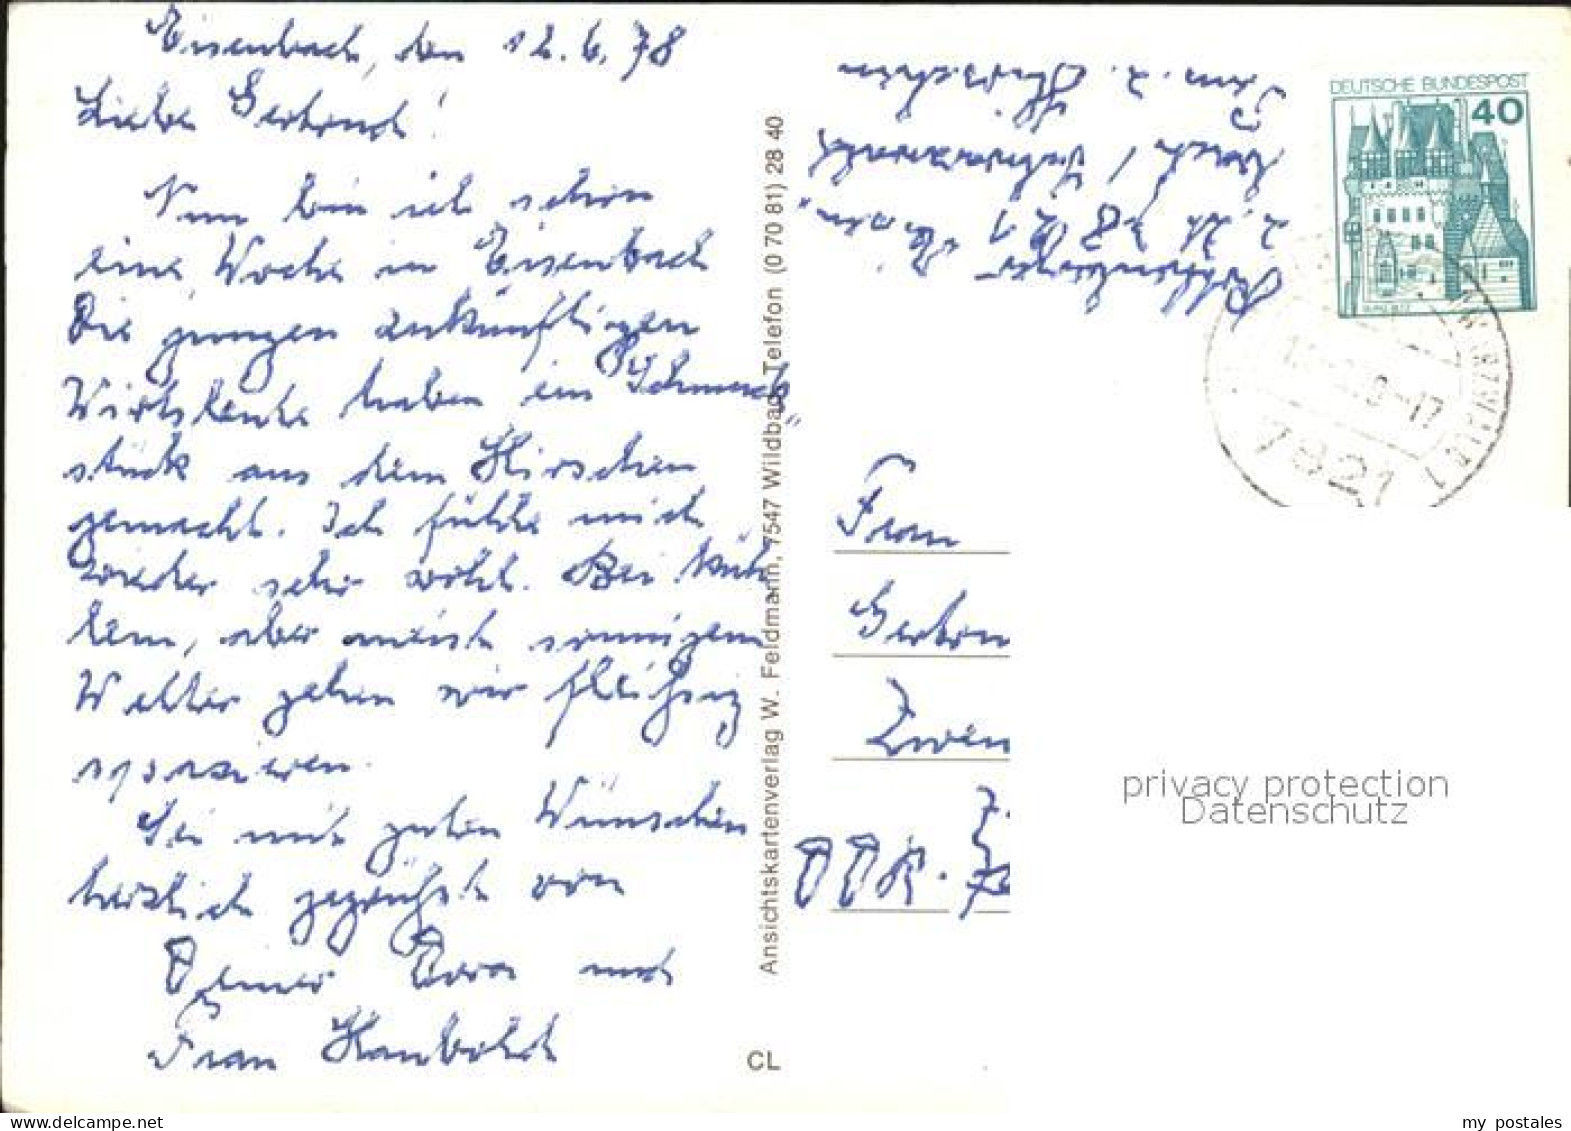 Eisenbach, den 12.6.78
Liebe Gertrud!
Nun bin ich schon
eine Woche in Eisenbach
Die jungen zukünftigen
Wirtsleute haben ein "Schmuck"
stück aus dem Hirschen
gemacht. Ich fühle mich
wieder sehr wohl. Bei küh
lem, aber meist sonnigem
Wetter gehen wir fleißig
spazieren.
Sei mit guten Wünschen
herzlich gegrüßt von
Deiner Dora und
Frau
Ansichtskartenverlag W. Feldmann, 7547 Wildbad, Telefon (0 70 81) 28 40
CL
z. Zt. 7821
DEUTSCHE BUNDESPOST
40
7821
Frau
DDR.
privacy protection
Datenschutz
my postales